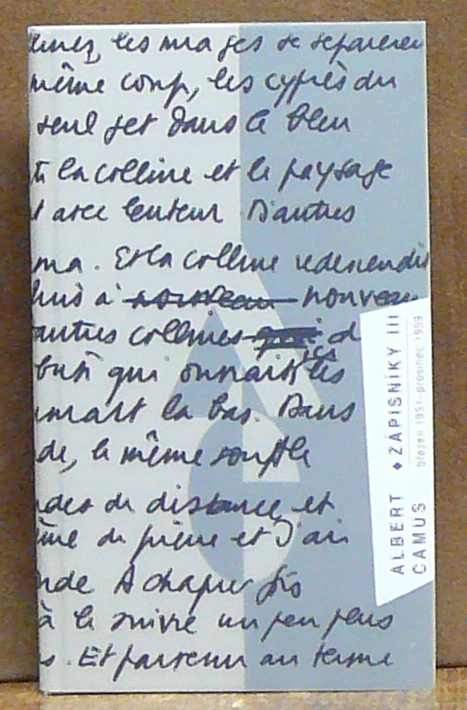 les images se séparèrent
même coup, les cyprès d'un
seul jet dans le bleu
la colline et le paysage
avec lenteur. D'autres
Et la colline redescendit
puis à nouveau nouveau
autres collines qui
qui ouvrait les
là bas. Dans
de, le même souffle
de distance et
de pierre et d'air
A chaque fois
à le suivre un peu plus
s. Et parvenu au terme
ALBERT CAMUS
◆ ZÁPISNÍKY III
březen 1951–prosinec 1959